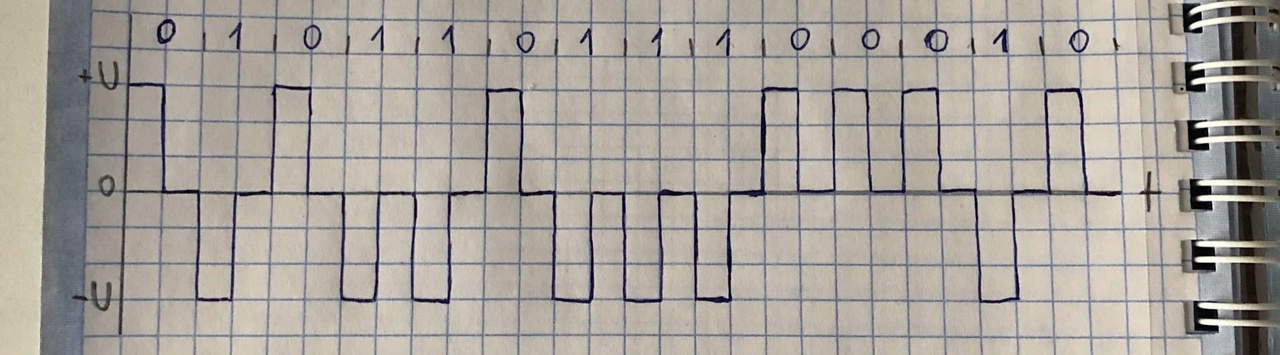 0 | 1 | 0 | 1 | 1 | 0 | 1 | 1 | 1 | 0 | 0 | 0 | 1 | 0 |
+U
0
-U